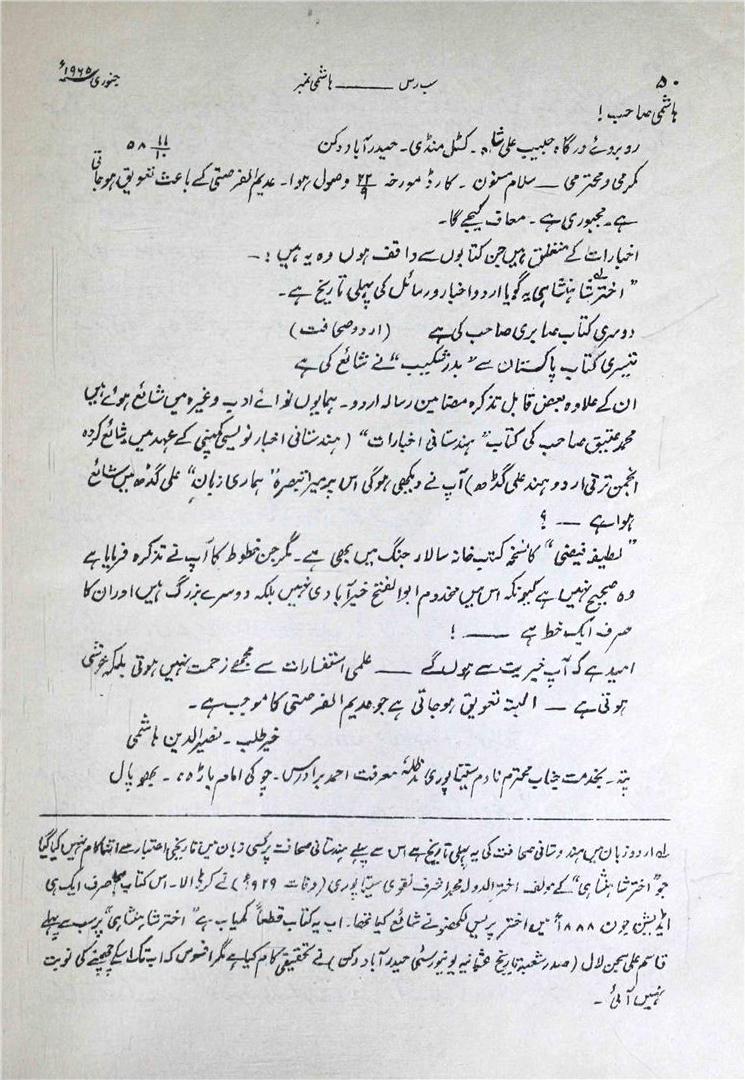 ۵۰ سب رس ــــــ ہاشمی نمبر جنوری ۱۹۶۵ء
ہاشمی صاحب !
روبروئے درگاہ حبیب علی شاہ ۔ کٹل منڈی۔ حیدرآباد دکن ۱۱/۱۰ ۵۸
مکرمی و محترمی — سلام مسنون ۔ کارڈ مورخہ ۲۲/۹ وصول ہوا۔ عدیم الفرصتی کے باعث تعویق ہوجاتی
ہے۔ مجبوری ہے ۔ معاف کیجیے گا۔
اخبارات کے متعلق میں جن کتابوں سے واقف ہوں وہ یہ ہیں :—
"اختر شاہنشاہی لہ یہ گویا اردو اخبار و رسائل کی پہلی تاریخ ہے۔
دوسری کتاب صابری صاحب کی ہے (اردو صحافت)
تیسری کتاب پاکستان سے "بدر شکیب" نے شائع کی ہے
ان کے علاوہ بعض قابل تذکرہ مضامین رسالہ اردو۔ ہمایوں نوائے ادب وغیرہ میں شائع ہوئے ہیں
محمد عتیق صاحب کی کتاب "ہندستانی اخبارات" (ہندستانی اخبار نویسی کمپنی کے عہد میں شائع کردہ
انجمن ترقی اردو ہند علی گڈھ) آپ نے دیکھی ہوگی اس پر میرا تبصرہ "ہماری زبان" علی گڈھ میں شائع
ہوا ہے — ؟
"لطیفہ فیضی" کا نسخہ کتب خانہ سالار جنگ میں بھی ہے۔ مگر جن خطوط کا آپ نے تذکرہ فرمایا ہے
وہ صحیح نہیں ہے کیونکہ اس میں مخدوم ابوالفتح خیرآبادی نہیں بلکہ دوسرے بزرگ ہیں اور ان کا
صرف ایک خط ہے —— !
امید ہے کہ آپ خیریت سے ہوں گے —— علمی استفسارات سے مجھے زحمت نہیں ہوتی بلکہ خوشی
ہوتی ہے — البتہ تعویق ہوجاتی ہے جو عدیم الفرصتی کا موجب ہے۔
خیر طلب ۔ نصیر الدین ہاشمی
پتہ ۔ بخدمت جناب محترم نادم سیتاپوری مدظلہٗ معرفت احمد برادرس۔ چوکی امام باڑہ ۔ بھوپال
لہ اردو زبان میں ہندوستانی صحافت کی یہ پہلی تاریخ ہے اس سے پہلے ہندستانی صحافت پر کسی زبان میں تاریخی اعتبار سے اتنا کام نہیں کیا گیا
جو "اختر شاہنشاہی" کے مولف اختر الدولہ محمد اشرف نقوی سیتاپوری (وفات ۹۲۹ء) نے کر ڈالا۔ اس کتاب کا صرف ایک ہی
ایڈیشن جون ۱۸۸۸ء میں اختر پریس لکھنؤ نے شائع کیا تھا۔ اب یہ کتاب قطعاً کمیاب ہے "اختر شاہنشاہی" پر سب سے پہلے
قاسم علی سجن لال (صدر شعبۂ تاریخ عثمانیہ یونیورسٹی حیدرآباد دکن) نے تحقیقی کام کیا ہے مگر افسوس کہ اب تک اسکے چھپنے کی نوبت
نہیں آئی ۔